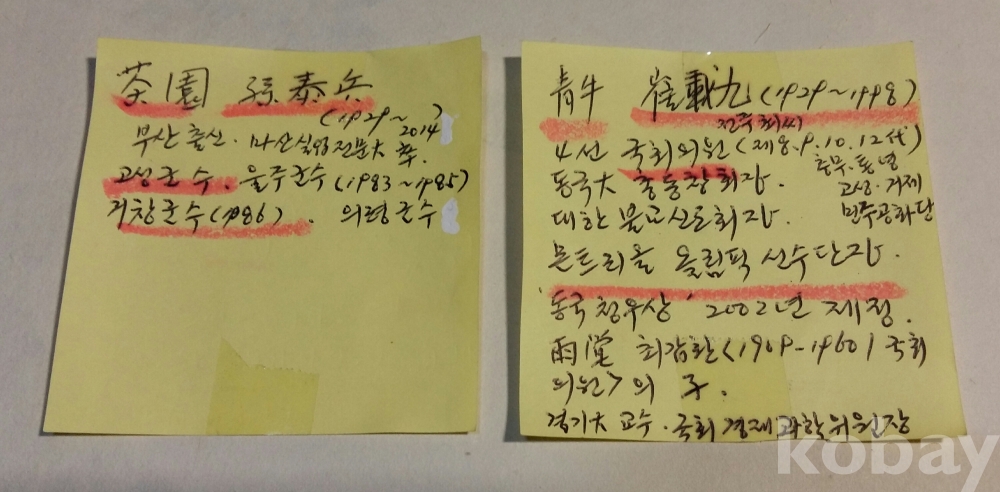 茶園 孫泰兵
(1929~2014)
부산 출신. 마산실업전문大 卒.
고성군수. 울주군수 (1983~1985)
거창군수(1986). 의령군수
青牛 崔載九 (1929~1998)
전주 최씨
4선 국회의원 (제8.9.10.12代)
충무.통영
고성.거제
민주공화단
동국大 총동창회장.
대한불교신도회장.
몬트리올 올림픽 선수단장.
'동국청우상' 2002년 제정.
雨堂 최갑환<1909-1960> 국회
의원>의 子.
경기大 교수. 국회 경제과학위원장
kobay